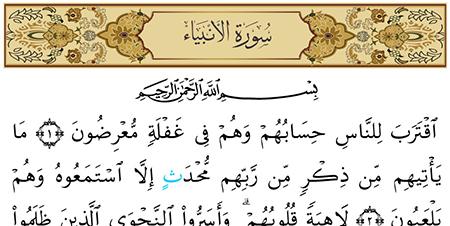 سُورَةُ الأَنبِيَاءِ
بِسْمِ ٱللَّهِ ٱلرَّحْمَٰنِ ٱلرَّحِيمِ
ٱقْتَرَبَ لِلنَّاسِ حِسَابُهُمْ وَهُمْ فِى غَفْلَةٍ مُّعْرِضُونَ ﴿١﴾ مَا
يَأْتِيهِم مِّن ذِكْرٍ مِّن رَّبِّهِم مُّحْدَثٍ إِلَّا ٱسْتَمَعُوهُ وَهُمْ
يَلْعَبُونَ ﴿٢﴾ لَاهِيَةً قُلُوبُهُمْ ۗ وَأَسَرُّوا۟ ٱلنَّجْوَى ٱلَّذِينَ ظَلَمُوا۟